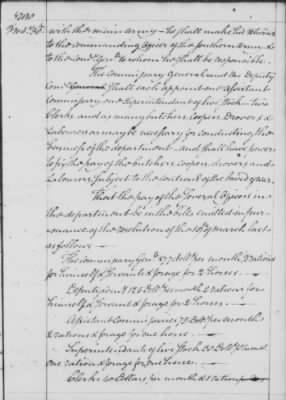 with the main army – he shall make his returns
to the commanding officer of the southern army &
to the Comy Genl to whom he shall be responsible.
The Commissary General and the Deputy
Comy General shall each appoint one assistant
Commissary one Superintendent of live Stock – two
Clerks and as many butchers, coopers, drovers &
Labourers as may be necessary for conducting the
business of the department – and shall have power
to fix the pay of the butchers, coopers, drovers and
Labourers subject to the controul of the board of war.
That the pay of the several Officers in
the department be in the bills emitted in pur-
suance of the resolution of the 18th of march last
as follows –
The Commissary Genl 177 dolls per month rations
for himself & servant & forage for 2 horses. –
Deputy 125 dolls per month & rations for
himself & servant & forage for 2 horses. –
Assistant Commissaries 75 dolls per month
2 rations & forage for one horse. –
Superintendent of live Stock 50 dolls per month
one ration & forage for one horse. –
Clerks 40 Dollars per month & 1 ration